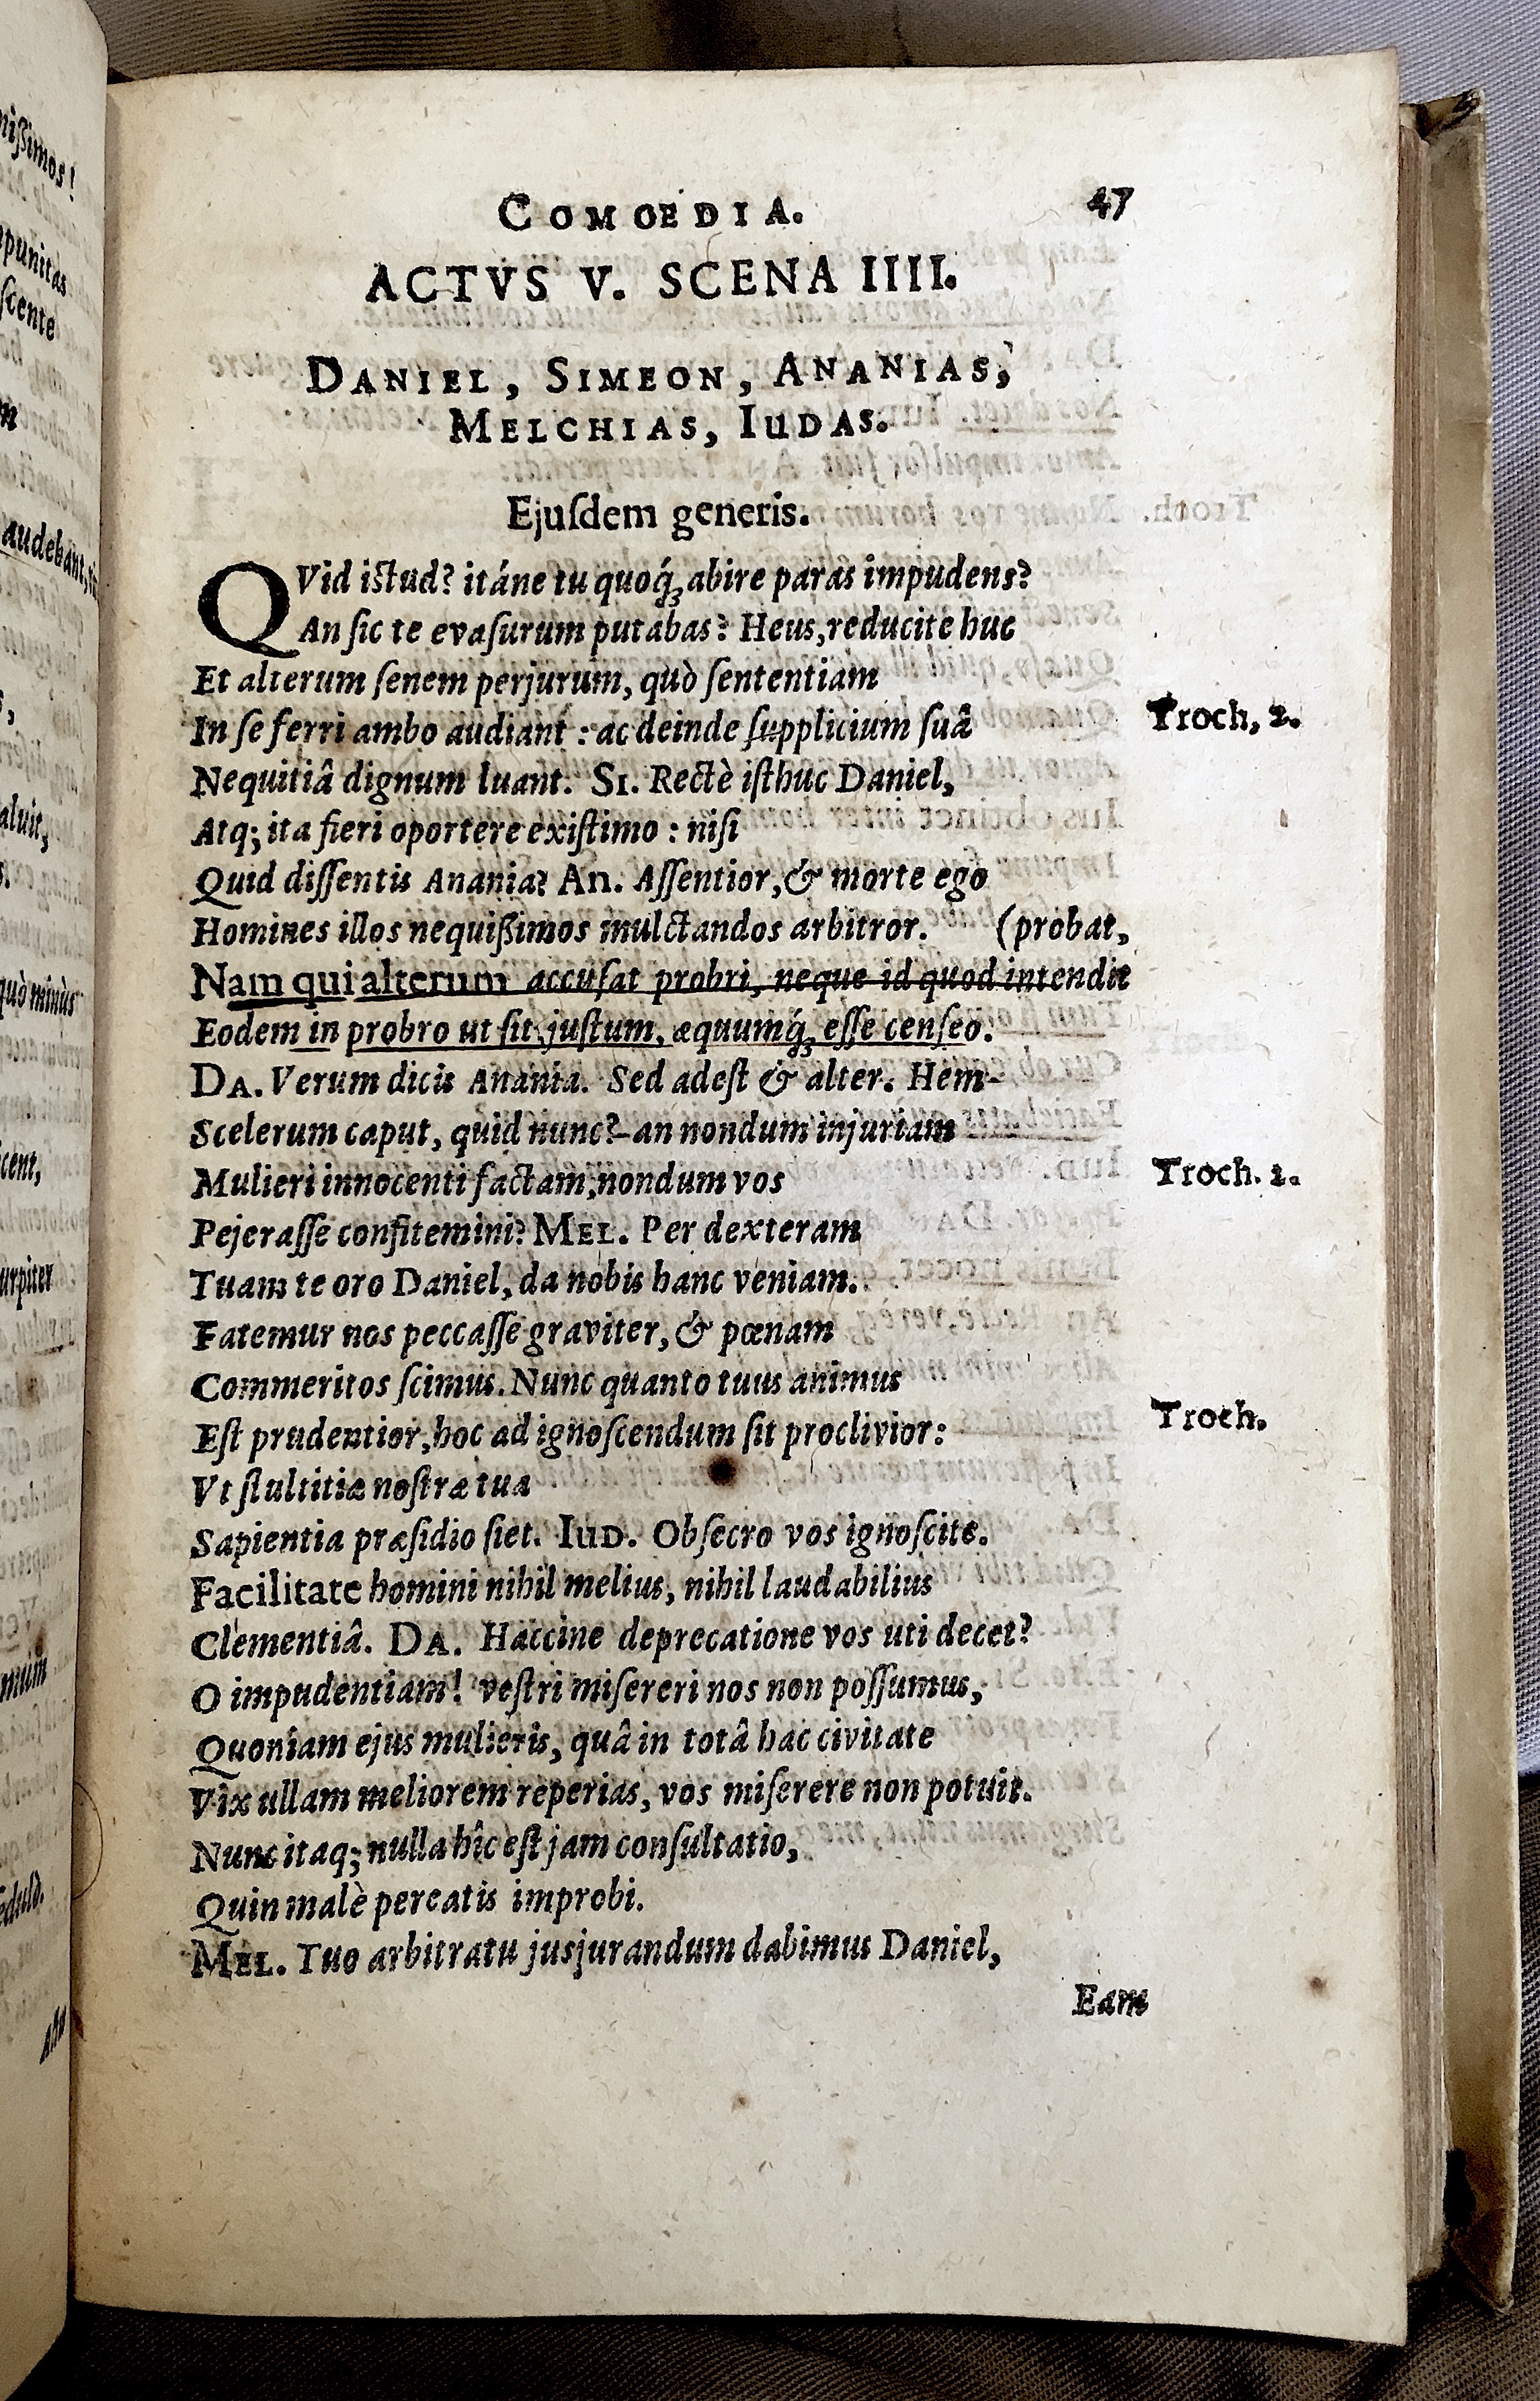 COMOEDIA. 47
ACTVS V. SCENA IIII.
DANIEL, SIMEON, ANANIAS,
MELCHIAS, IUDAS.
Ejuſdem generis.
QVid iſtud? itáne tu quoq́; abire paras impudens?
An ſic te evaſurum putabas? Heus, reducite huc
Et alterum ſenem perjurum, quò ſententiam
In ſe ferri ambo audiant : ac deinde ſupplicium ſuâ Troch, 2.
Nequitiâ dignum luant. SI. Rectè iſthuc Daniel,
Atq; ita fieri oportere exiſtimo : niſi
Quid diſſentis Anania? An. Aſſentior, & morte ego
Homines illos nequißimos mulctandos arbitror. (probat,
Nam qui alterum accuſat probri, neque id quod intendit
Eodem in probro ut ſit, juſtum, æquumq́; eſſe cenſeo.
DA. Verum dicis Anania. Sed adeſt & alter. Hem-
Scelerum caput, quid nunc? an nondum injuriam
Mulieri innocenti factam, nondum vos Troch. 2.
Pejeraſſe confitemini? MEL. Per dexteram
Tuam te oro Daniel, da nobis hanc veniam.
Fatemur nos peccaſſe graviter, & pœnam
Commeritos ſcimus. Nunc quanto tuus animus
Eſt prudentior, hoc ad ignoſcendum ſit proclivior: Troch.
Vt ſtultitiæ noſtræ tua
Sapientia præſidio ſiet. IUD. Obſecro vos ignoſcite.
Facilitate homini nihil melius, nihil laudabilius
Clementiâ. DA. Haccine deprecatione vos uti decet?
O impudentiam! veſtri miſereri nos non poſſumus,
Quoniam ejus mulieris, quâ in totâ hac civitate
Vix ullam meliorem reperias, vos miſerere non potuit.
Nunc itaq; nulla hîc eſt jam conſultatio,
Quin malè pereatis improbi.
MEL. Tuo arbitratu jusjurandum dabimus Daniel,
Eam